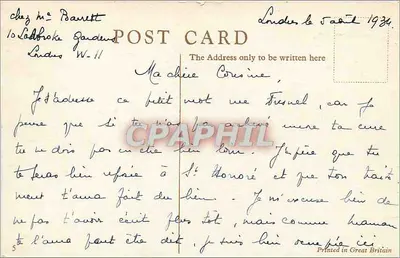 chez Mr Barrett
10 Ladbroke Gardens
Londres W-11
Londres le 5 août 1934
POST CARD
The Address only to be written here
Ma chère Cousine,
J'adresse ce petit mot rue Fresnel, car je
pense que si tu n'as pas achevé encore ta cure
tu ne dois pas en être bien loin. J'espère que tu
te seras bien reposée à St Honoré et que ton traite
ment t'aura fait du bien. Je m'excuse bien de
ne pas t'avoir écrit plus tôt, mais comme maman
te l'aura peut être dit, je suis bien occupée ici
5
Printed in Great Britain
CPAPHIL